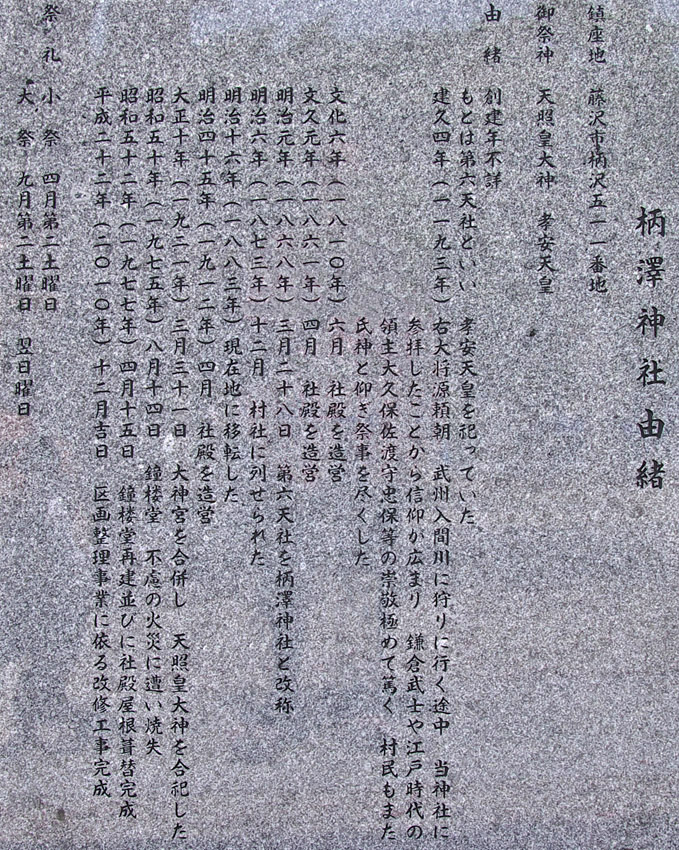 柄澤神社由緒
鎮座地　藤沢市柄沢五一一番地
御祭神　天照皇大神　孝安天皇
由緒　創建年不詳
もとは第六天社といい　孝安天皇を祀っていた
建久四年（一一九三年）右大将源頼朝　武州入間川に狩りに行く途中　当神社に
参拝したことから信仰が広まり　鎌倉武士や江戸時代の
領主大久保佐渡守忠保等の崇敬極めて篤く　村民もまた
氏神と仰ぎ祭事を尽くした
文化六年（一八一〇年）六月　社殿を造営
文久元年（一八六一年）四月　社殿を造営
明治元年（一八六八年）三月二十八日　第六天社を柄澤神社と改称
明治六年（一八七三年）十二月　村社に列せられた
明治十六年（一八八三年）現在地に移転した
明治四十五年（一九一二年）四月　社殿を造営
大正十年（一九二一年）三月三十一日　大神宮を合併し　天照皇大神を合祀した
昭和五十年（一九七五年）八月十四日　鐘楼堂　不慮の火災に遭い焼失
昭和五十二年（一九七七年）四月十五日　鐘楼堂再建並びに社殿屋根葺替完成
平成二十二年（二〇一〇年）十二月吉日　区画整理事業に依る改修工事完成
祭礼　小祭　四月第二土曜日
大祭　九月第二土曜日　翌日曜日